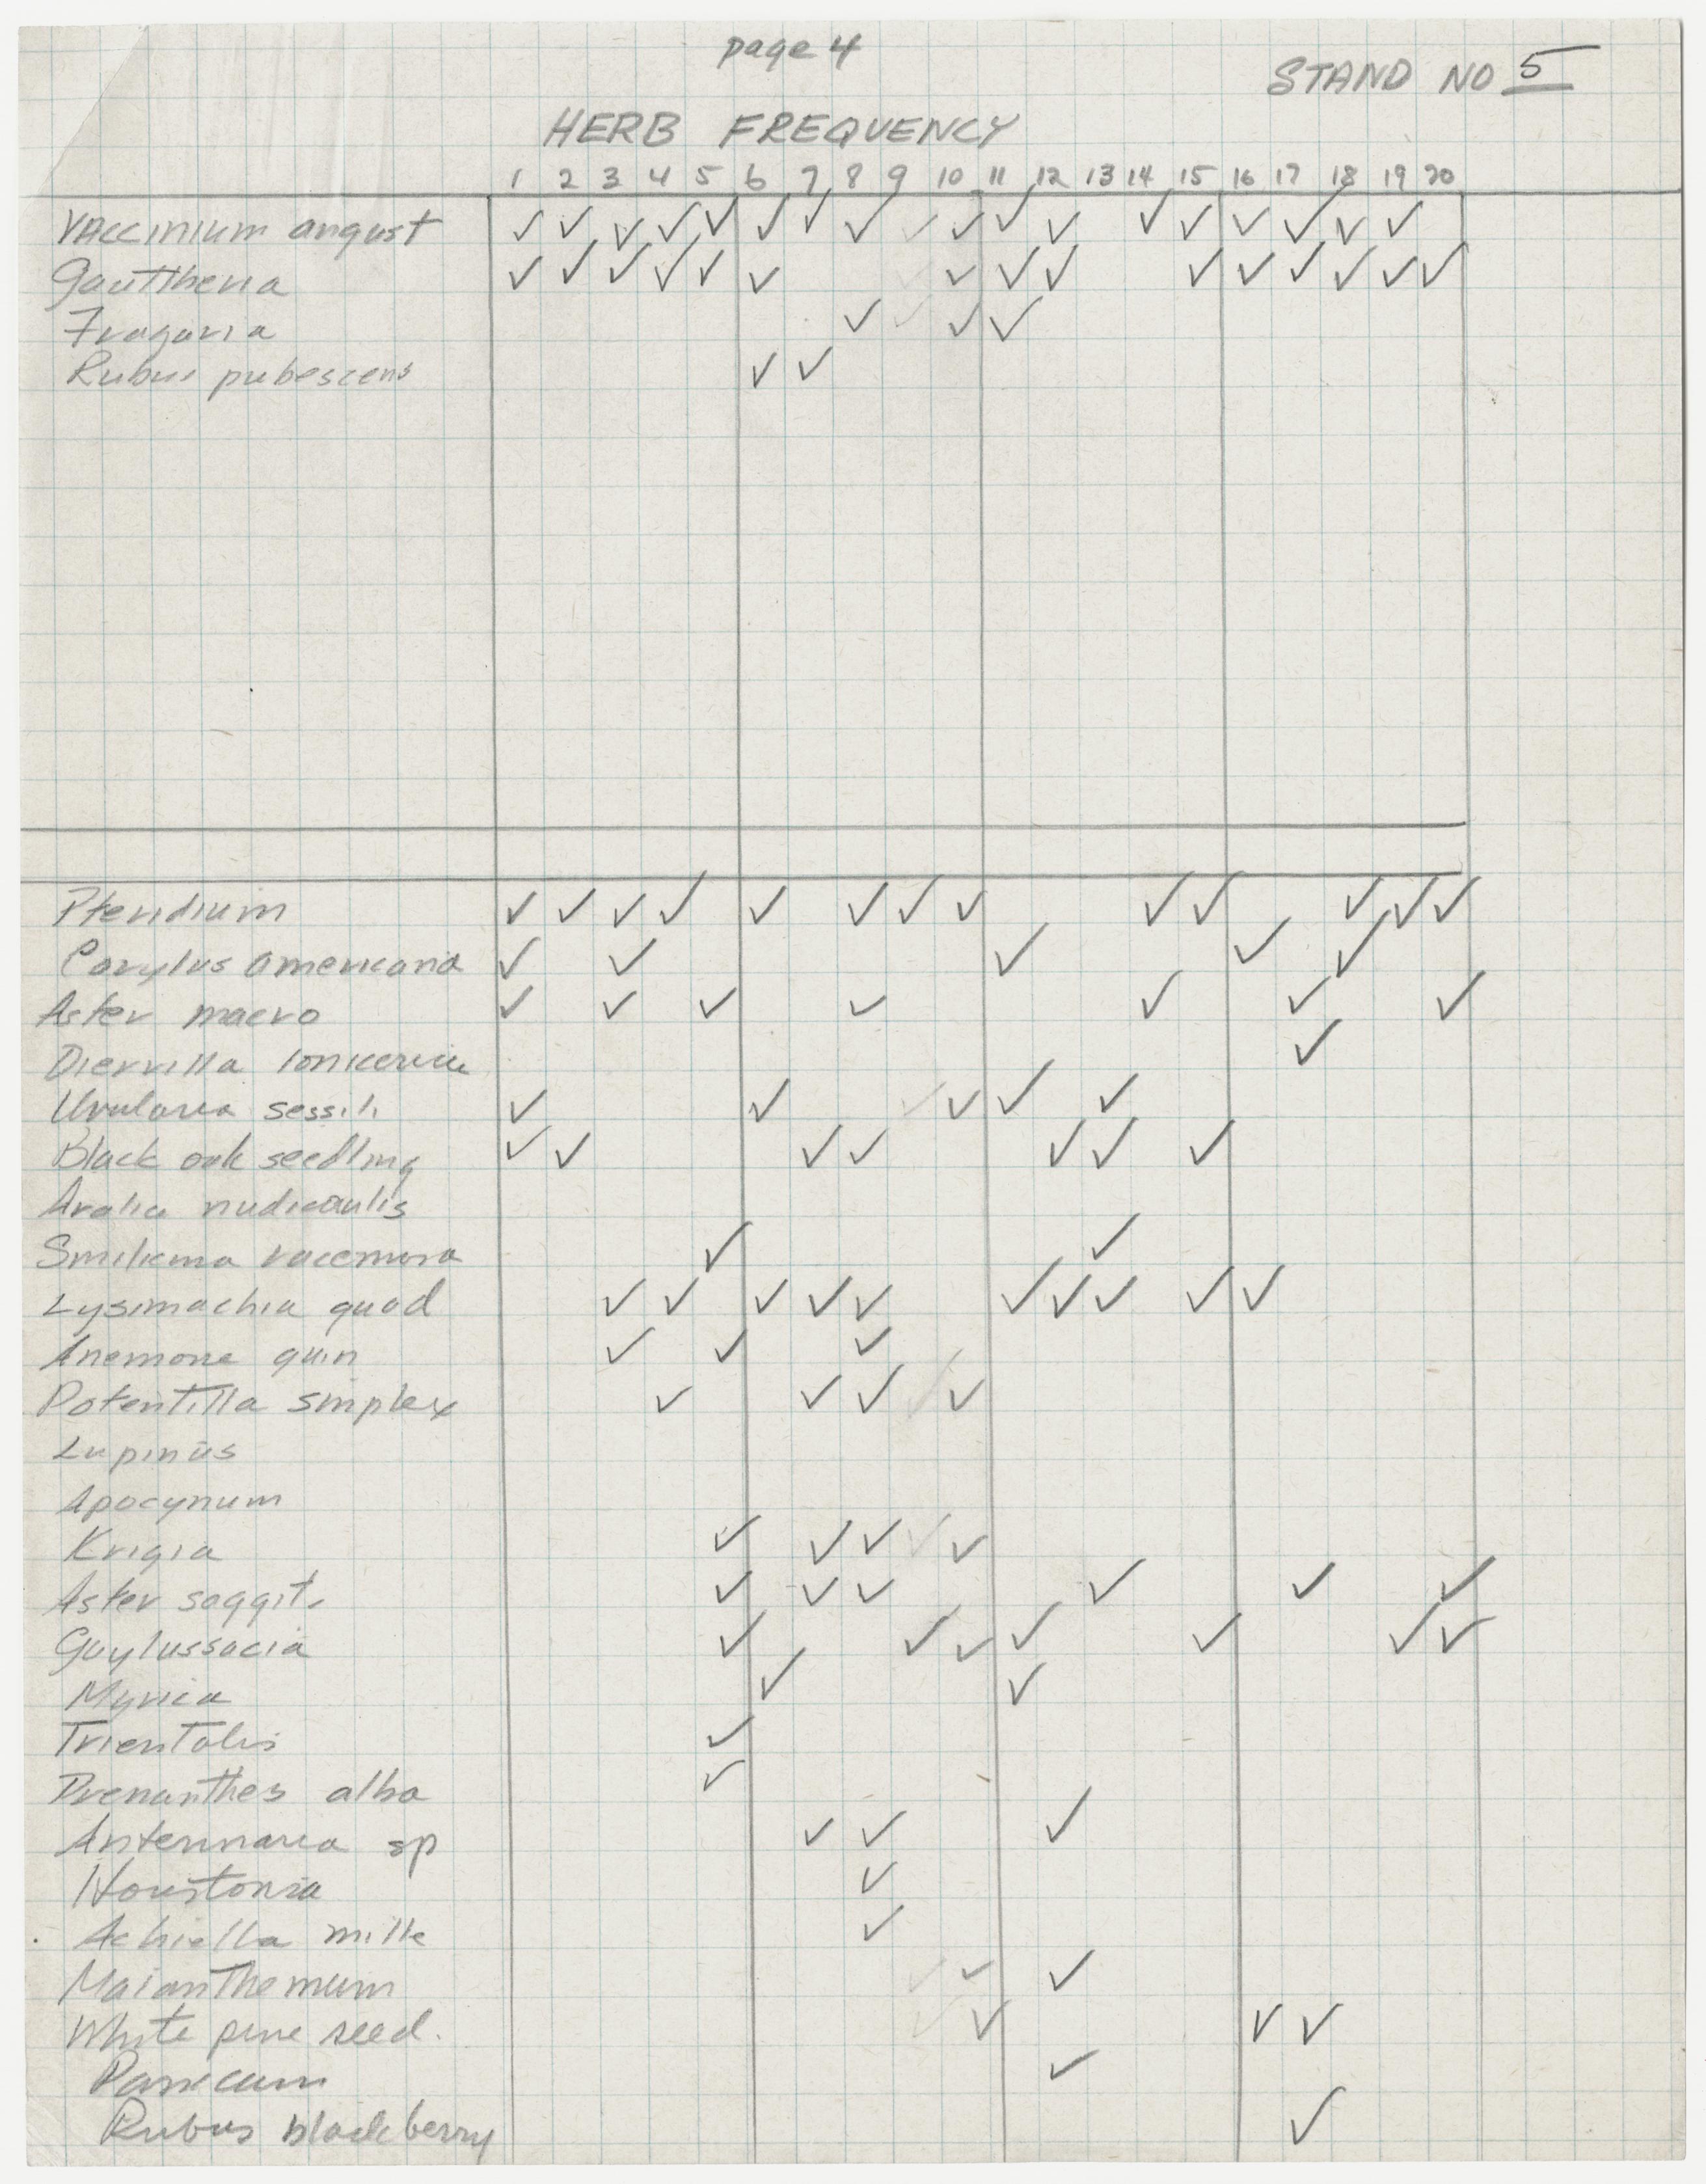 page 4
STAND NO 5
HERB FREQUENCY
1 2 3 4 5 6 7 8 9 10 11 12 13 14 15 16 17 18 19 20
Vaccinium angust ✓ ✓ ✓ ✓ ✓ ✓ ✓ ✓ ✓ ✓ ✓ ✓ ✓ ✓ ✓ ✓ ✓ ✓
Gaultheria ✓ ✓ ✓ ✓ ✓ ✓ ✓ ✓ ✓ ✓ ✓ ✓ ✓ ✓ ✓
Fragaria ✓ ✓ ✓ ✓
Rubus pubescens ✓ ✓
Pteridium ✓ ✓ ✓ ✓ ✓ ✓ ✓ ✓ ✓ ✓ ✓ ✓ ✓
Corylus americana ✓ ✓ ✓ ✓ ✓
Aster macro ✓ ✓ ✓ ✓ ✓ ✓ ✓
Diervilla lonicerae ✓
Uvularia sessili ✓ ✓ ✓ ✓ ✓ ✓
Black oak seedling ✓ ✓ ✓ ✓ ✓ ✓ ✓
Aralia nudicaulis
Smilicina racemosa ✓ ✓
Lysimachia quad ✓ ✓ ✓ ✓ ✓ ✓ ✓ ✓ ✓ ✓
Anemone quin ✓ ✓ ✓
Potentilla simplex ✓ ✓ ✓ ✓ ✓
Lupinus
Apocynum
Krigia ✓ ✓ ✓ ✓ ✓
Aster saggit. ✓ ✓ ✓ ✓ ✓ ✓
Gaylussacia ✓ ✓ ✓ ✓ ✓ ✓ ✓
Myrica ✓ ✓
Trientalis ✓
Prenanthes alba ✓
Antennaria sp ✓ ✓ ✓
Houstonia ✓
Achiella mille ✓
Maianthemum ✓ ✓ ✓
White pine seed. ✓ ✓ ✓ ✓
Panicum ✓
Rubus blackberry ✓